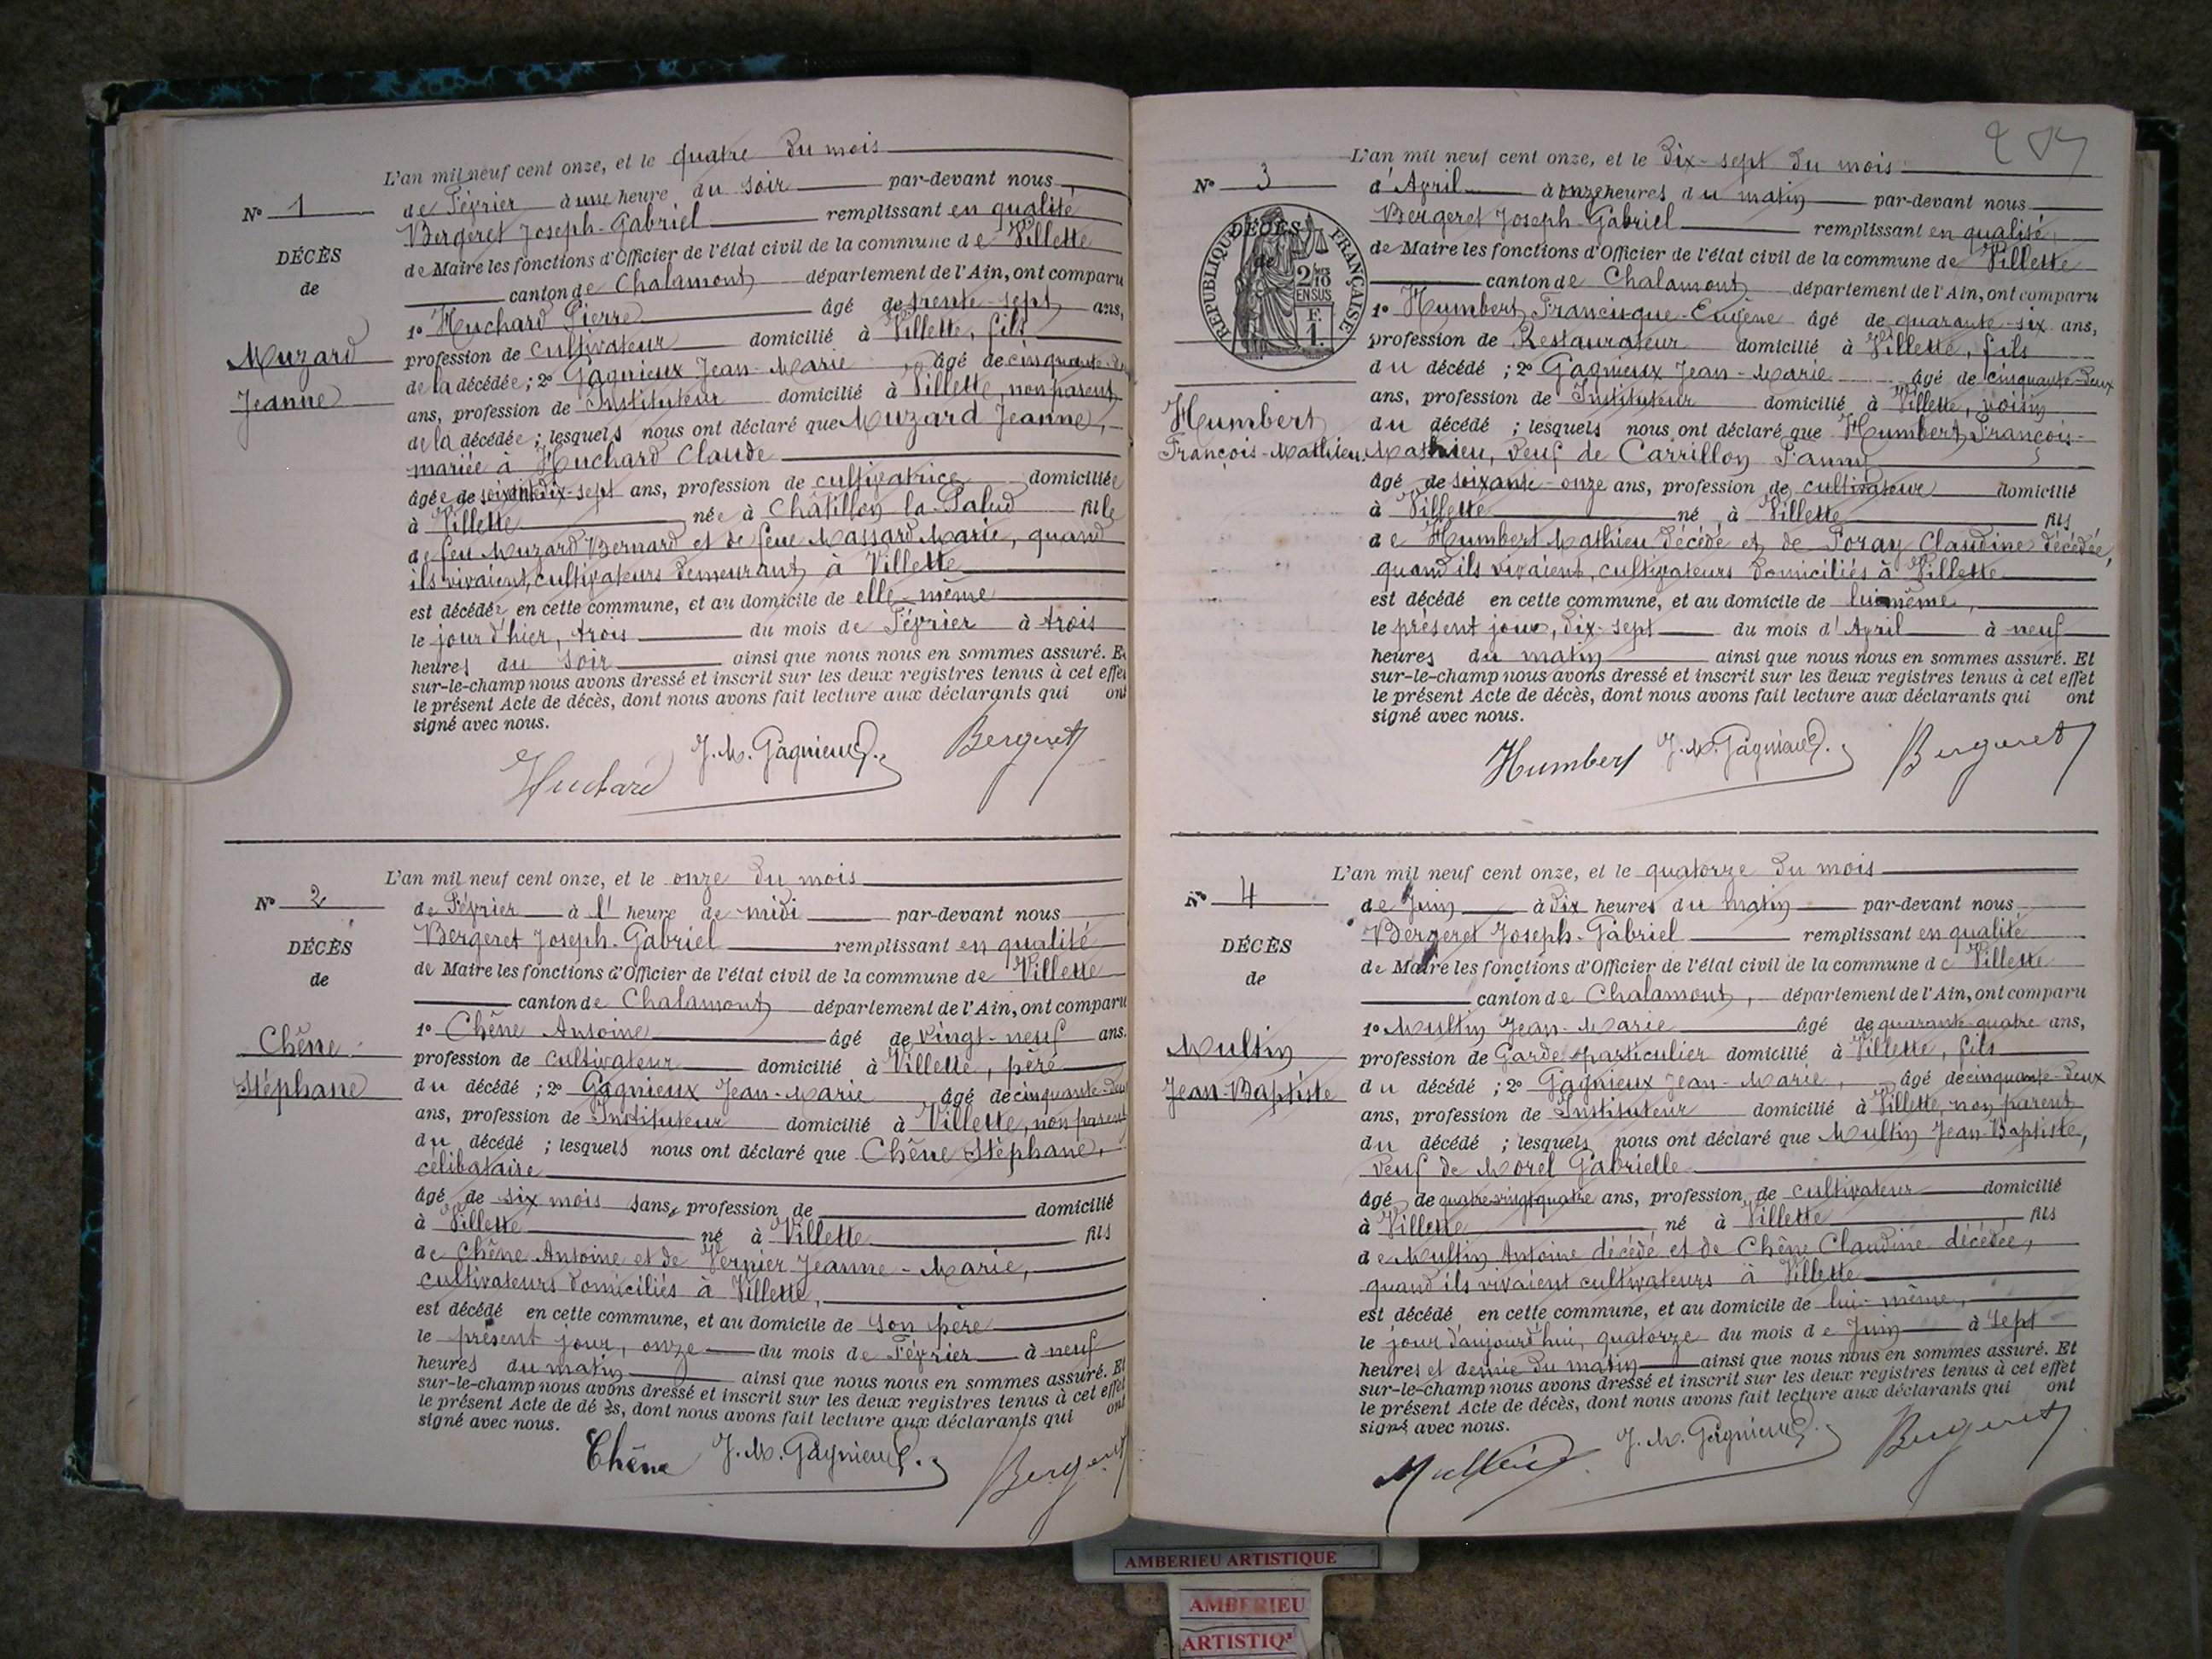 L'an mil neuf cent onze, et le quatre du mois
N° 1
de Février à une heure du soir par-devant nous
Bergeret Joseph-Gabriel remplissant en qualité
DÉCÈS
de Maire les fonctions d'Officier de l'état civil de la commune de Villette
de
canton de Chalamont département de l'Ain, ont comparu
1° Huchard Pierre âgé de trente-sept ans,
Muzard
profession de cultivateur domicilié à Villette, fils
Jeanne
de la décédée ; 2° Gagnieux Jean-Marie âgé de cinquante-
ans, profession de Instituteur domicilié à Villette, non parent
de la décédée ; lesquels nous ont déclaré que Muzard Jeanne,
mariée à Huchard Claude
âgée de soixante dix-sept ans, profession de cultivatrice domiciliée
à Villette née à Châtillon la Palud fille
de feu Muzard Bernard et de feue Massard Marie, quand
ils vivaient, cultivateurs demeurant à Villette
est décédée en cette commune, et au domicile de elle-même
le jour d'hier, trois du mois de Février à trois
heures du soir ainsi que nous nous en sommes assuré. Et
sur-le-champ nous avons dressé et inscrit sur les deux registres tenus à cet effet
le présent Acte de décès, dont nous avons fait lecture aux déclarants qui ont
signé avec nous.
Huchard J. M. Gagnieux Bergeret
L'an mil neuf cent onze, et le onze du mois
N° 2
de Février à l' heure de midi par-devant nous
Bergeret Joseph-Gabriel remplissant en qualité
DÉCÈS
de Maire les fonctions d'Officier de l'état civil de la commune de Villette
de
canton de Chalamont département de l'Ain, ont comparu
1° Chêne Antoine âgé de vingt-neuf ans.
Chêne
profession de cultivateur domicilié à Villette, père
Stéphane
du décédé ; 2° Gagnieux Jean-Marie, âgé de cinquante-deux
ans, profession de Instituteur domicilié à Villette, non parent
du décédé ; lesquels nous ont déclaré que Chêne Stéphane,
célibataire
âgé de six mois sans profession de domicilié
à Villette né à Villette fils
de Chêne Antoine et de Vernier Jeanne-Marie,
cultivateurs domiciliés à Villette,
est décédé en cette commune, et au domicile de son père
le présent jour, onze du mois de Février à neuf
heures du matin ainsi que nous nous en sommes assuré. Et
sur-le-champ nous avons dressé et inscrit sur les deux registres tenus à cet effet
le présent Acte de dé ès, dont nous avons fait lecture aux déclarants qui ont
signé avec nous.
Chêne J. M. Gagnieux. Bergeret
L'an mil neuf cent onze, et le dix-sept du mois
N° 3
d'Avril à onze heures du matin par-devant nous
Bergeret Joseph-Gabriel remplissant en qualité
DÉCÈS
de
RÉPUBLIQUE FRANÇAISE
2/10 EN SUS
F.
1.
de Maire les fonctions d'Officier de l'état civil de la commune de Villette
canton de Chalamont département de l'Ain, ont comparu
1° Humbert Francisque-Eugène âgé de quarante-six ans,
profession de Restaurateur domicilié à Villette, fils
du décédé ; 2° Gagnieux Jean-Marie âgé de cinquante-deux
ans, profession de Instituteur domicilié à Villette, voisin
Humbert
du décédé ; lesquels nous ont déclaré que Humbert François-
François-Mathieu.
Mathieu, veuf de Carrillon Fanny
âgé de soixante-onze ans, profession de cultivateur domicilié
à Villette né à Villette fils
de Humbert Mathieu décédé et de Foray Claudine décédée,
quand ils vivaient, cultivateurs domiciliés à Villette
est décédé en cette commune, et au domicile de lui-même,
le présent jour, dix-sept du mois d'Avril à neuf
heures du matin ainsi que nous nous en sommes assuré. Et
sur-le-champ nous avons dressé et inscrit sur les deux registres tenus à cet effet
le présent Acte de décès, dont nous avons fait lecture aux déclarants qui ont
signé avec nous.
Humbert J. M. Gagnieux. Bergeret
L'an mil neuf cent onze, et le quatorze du mois
N° 4
de Juin à dix heures du matin par-devant nous
Bergeret Joseph-Gabriel remplissant en qualité
DÉCÈS
de Maire les fonctions d'Officier de l'état civil de la commune de Villette
de
canton de Chalamont, département de l'Ain, ont comparu
1° Multin Jean-Marie âgé de quarante-quatre ans,
Multin
profession de Garde particulier domicilié à Villette, fils
Jean-Baptiste
du décédé ; 2° Gagnieux Jean-Marie, âgé de cinquante-deux
ans, profession de Instituteur domicilié à Villette, non parent
du décédé ; lesquels nous ont déclaré que Multin Jean-Baptiste,
veuf de Morel Gabrielle
âgé de quatre-vingt quatre ans, profession de cultivateur domicilié
à Villette né à Villette fils
de Multin Antoine décédé et de Chêne Claudine décédée,
quand ils vivaient cultivateurs à Villette
est décédé en cette commune, et au domicile de lui-même,
le jour d'aujourd'hui, quatorze du mois de Juin à sept
heures et demie du matin ainsi que nous nous en sommes assuré. Et
sur-le-champ nous avons dressé et inscrit sur les deux registres tenus à cet effet
le présent Acte de décès, dont nous avons fait lecture aux déclarants qui ont
signé avec nous.
Multin J. M. Gagnieux. Bergeret
AMBERIEU ARTISTIQUE
AMBERIEU
ARTISTIQ